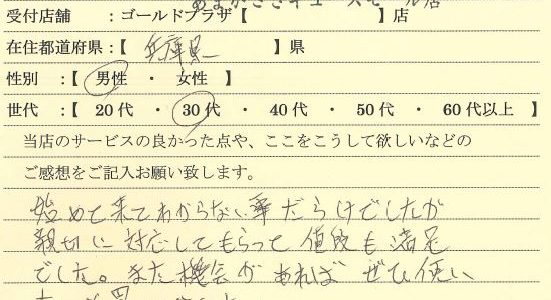 あまがさきキューズモール店
受付店舗 :ゴールドプラザ【 】店
在住都道府県:【 兵庫県 】県
性別 :【 男性 ・ 女性 】
世代 :【 20代 ・ 30代 ・ 40代 ・ 50代 ・ 60代以上 】
当店のサービスの良かった点や、ここをこうして欲しいなどの
ご感想をご記入お願い致します。
始めて来てわからない事だらけでしたが
親切に対応してもらって値段も満足
でした。また機会があればぜひ使い
たいと思